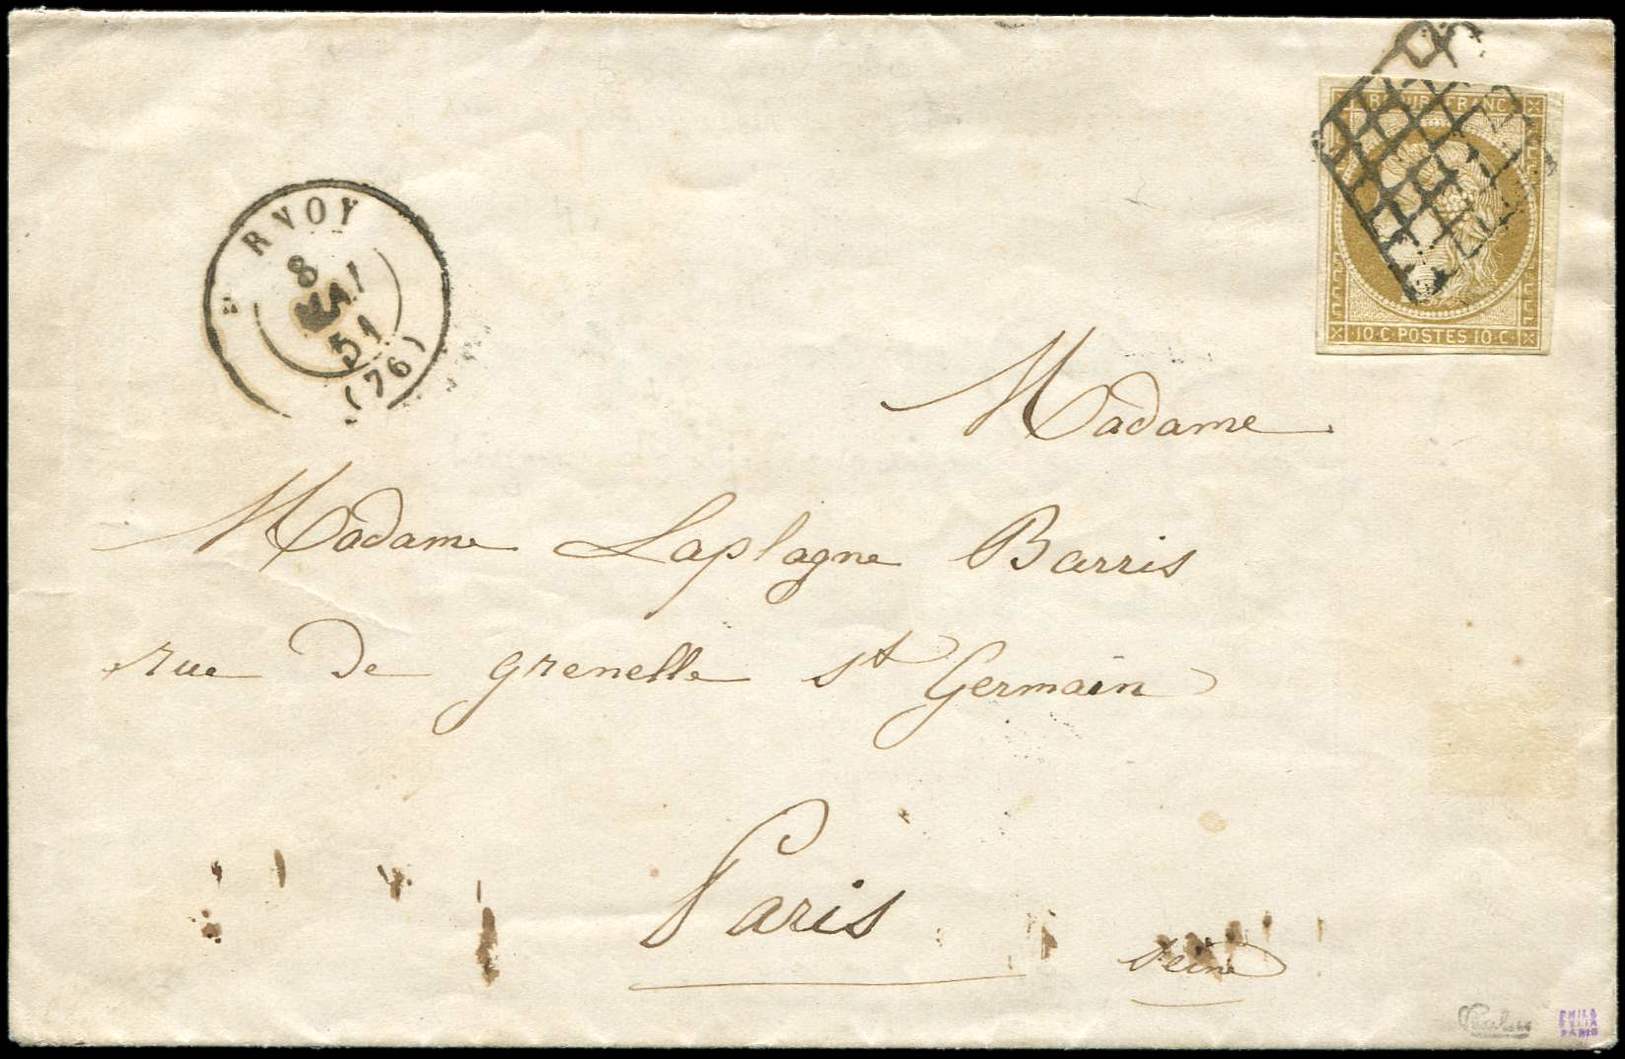 RVOY
8
MAI
51
(76)
REPUB. FRANC
10·C·POSTES 10·C·
Madame
Madame Laplagne Barris
rue de grenelle st Germain
Paris
Seine
PHILA
PARIS